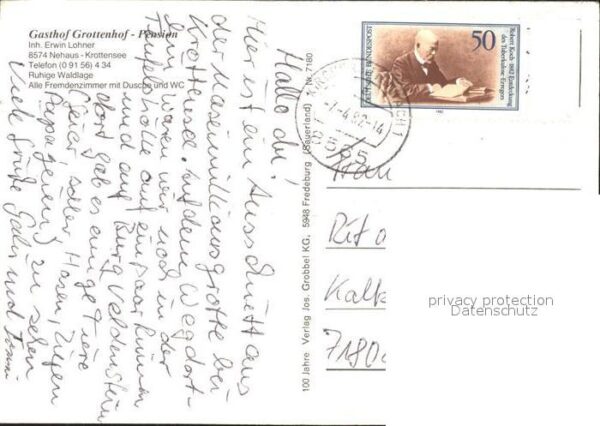 Gasthof Grottenhof - Pension
Inh. Erwin Lohner
8574 Nehaus - Krottensee
Telefon (0 91 56) 4 34
Ruhige Waldlage
Alle Fremdenzimmer mit Dusche und WC
Hallo du!
Hier ist ein Ausschnitt aus
der Maximiliansgrotte bei
Krottensee. Auf dem Weg dort-
hin waren wir noch in der
Teufelshöhle auf ein paar Ruinen
und auf Burg Veldenstein
dort gab es einige Tiere
Hasen, Ziegen
Papageien) zu sehen
Viele Grüße Gabi und
100 Jahre Verlag Jos. Grobbel KG, 5948 Fredeburg (Sauerland) * Nr. 7180
Robert Koch 1882 Entdeckung
des Tuberkulose-Erregers
50
DEUTSCHE BUNDESPOST
1982
-7.-4.82-14
8565
Frau
Rita
Kalk
7180
privacy protection
Datenschutz